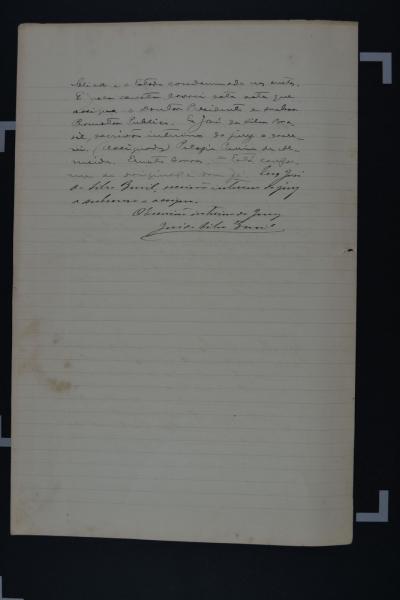 blica e o Estado condemnado nas custas.
E para constar lavrei esta acta que
assigna o Doutor Presidente e
Promotor Publico. Eu José da Silva Bra
sil, escrivão interino do jury o escre
vi. (Assignados) Pelagio de Al
meida. Ernesto . Está confor
me ao original e dou fé. Eu, José
da Silva Brasil, escrivão interino do jury
o subscrevo e assigno.
O Escrivão interino do Jury
José da Silva Brasil